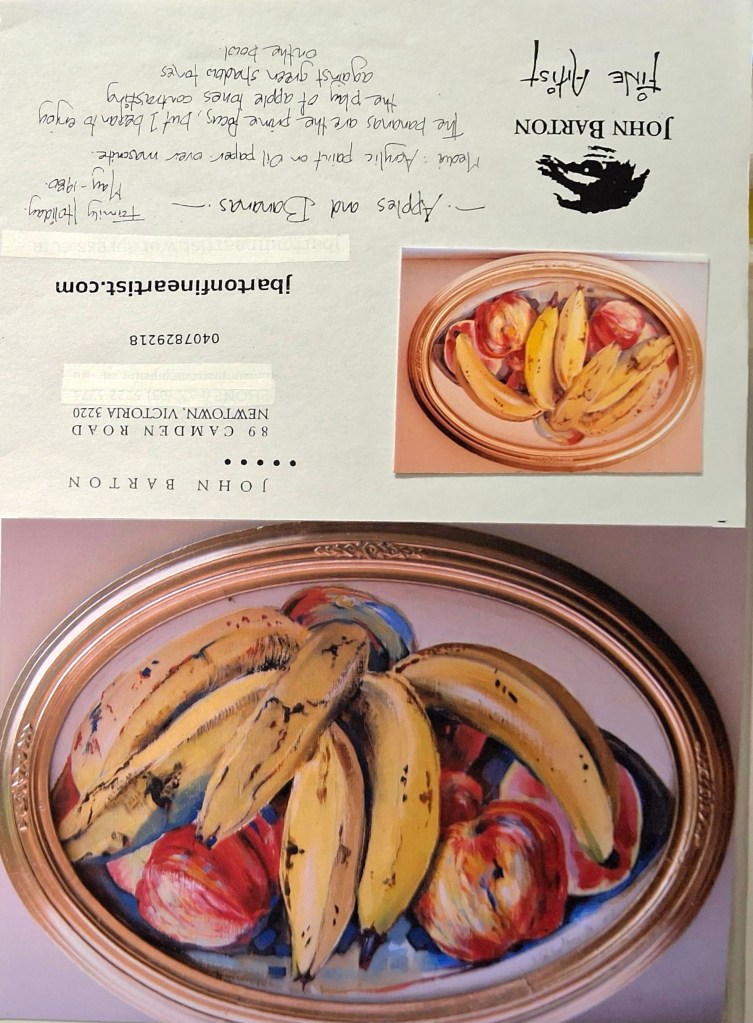 JOHN BARTON
• • • • •
89 CAMDEN ROAD
NEWTOWN, VICTORIA 3220
0407829218
jbartonfineartist.com
—. Apples and Bananas. — Family Holiday.
May - 1980.
Media : Acrylic paint on Oil paper over masonite.
The bananas are the prime focus, but I began to enjoy
the play of apple tones contrasting
against green shadow tones
on the bowl.
JOHN BARTON
FINE ARTIST